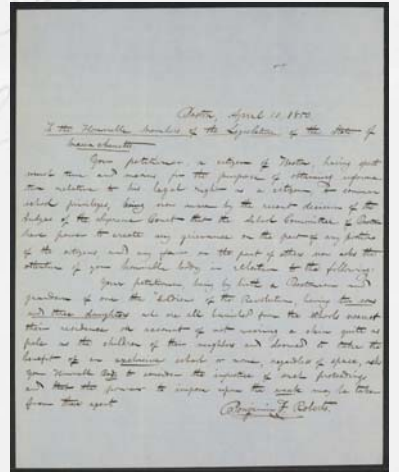 Boston, April 10, 1850.
To the Honorable Members of the Legislature of the State of
Massachusetts
Your petitioner, a citizen of Boston, having spent
much time and means for the purpose of obtaining informa
tion relative to his legal right as a citizen to common
school privileges, being now aware by the recent decision of the
Judges of the Supreme Court that the School Committee of Boston
have power to create any grievance on the part of any portion
of the citizens and any favor on the part of others now asks the
attention of your honorable body in relation to the following:
Your petitioner, being by birth a Bostonian and
grandson of one the soldiers of the Revolution, having two sons
and three daughters who are all banished from the schools nearest
their residence on account of not wearing a skin quite as
pale as the children of their neighbors and doomed to take the
benefit of an exclusive school or none, regardless of space, asks
your Honorable Body to consider the injustice of such proceedings
and that the power to impose upon the weak may be taken
from their agent
Benjamin F. Roberts.